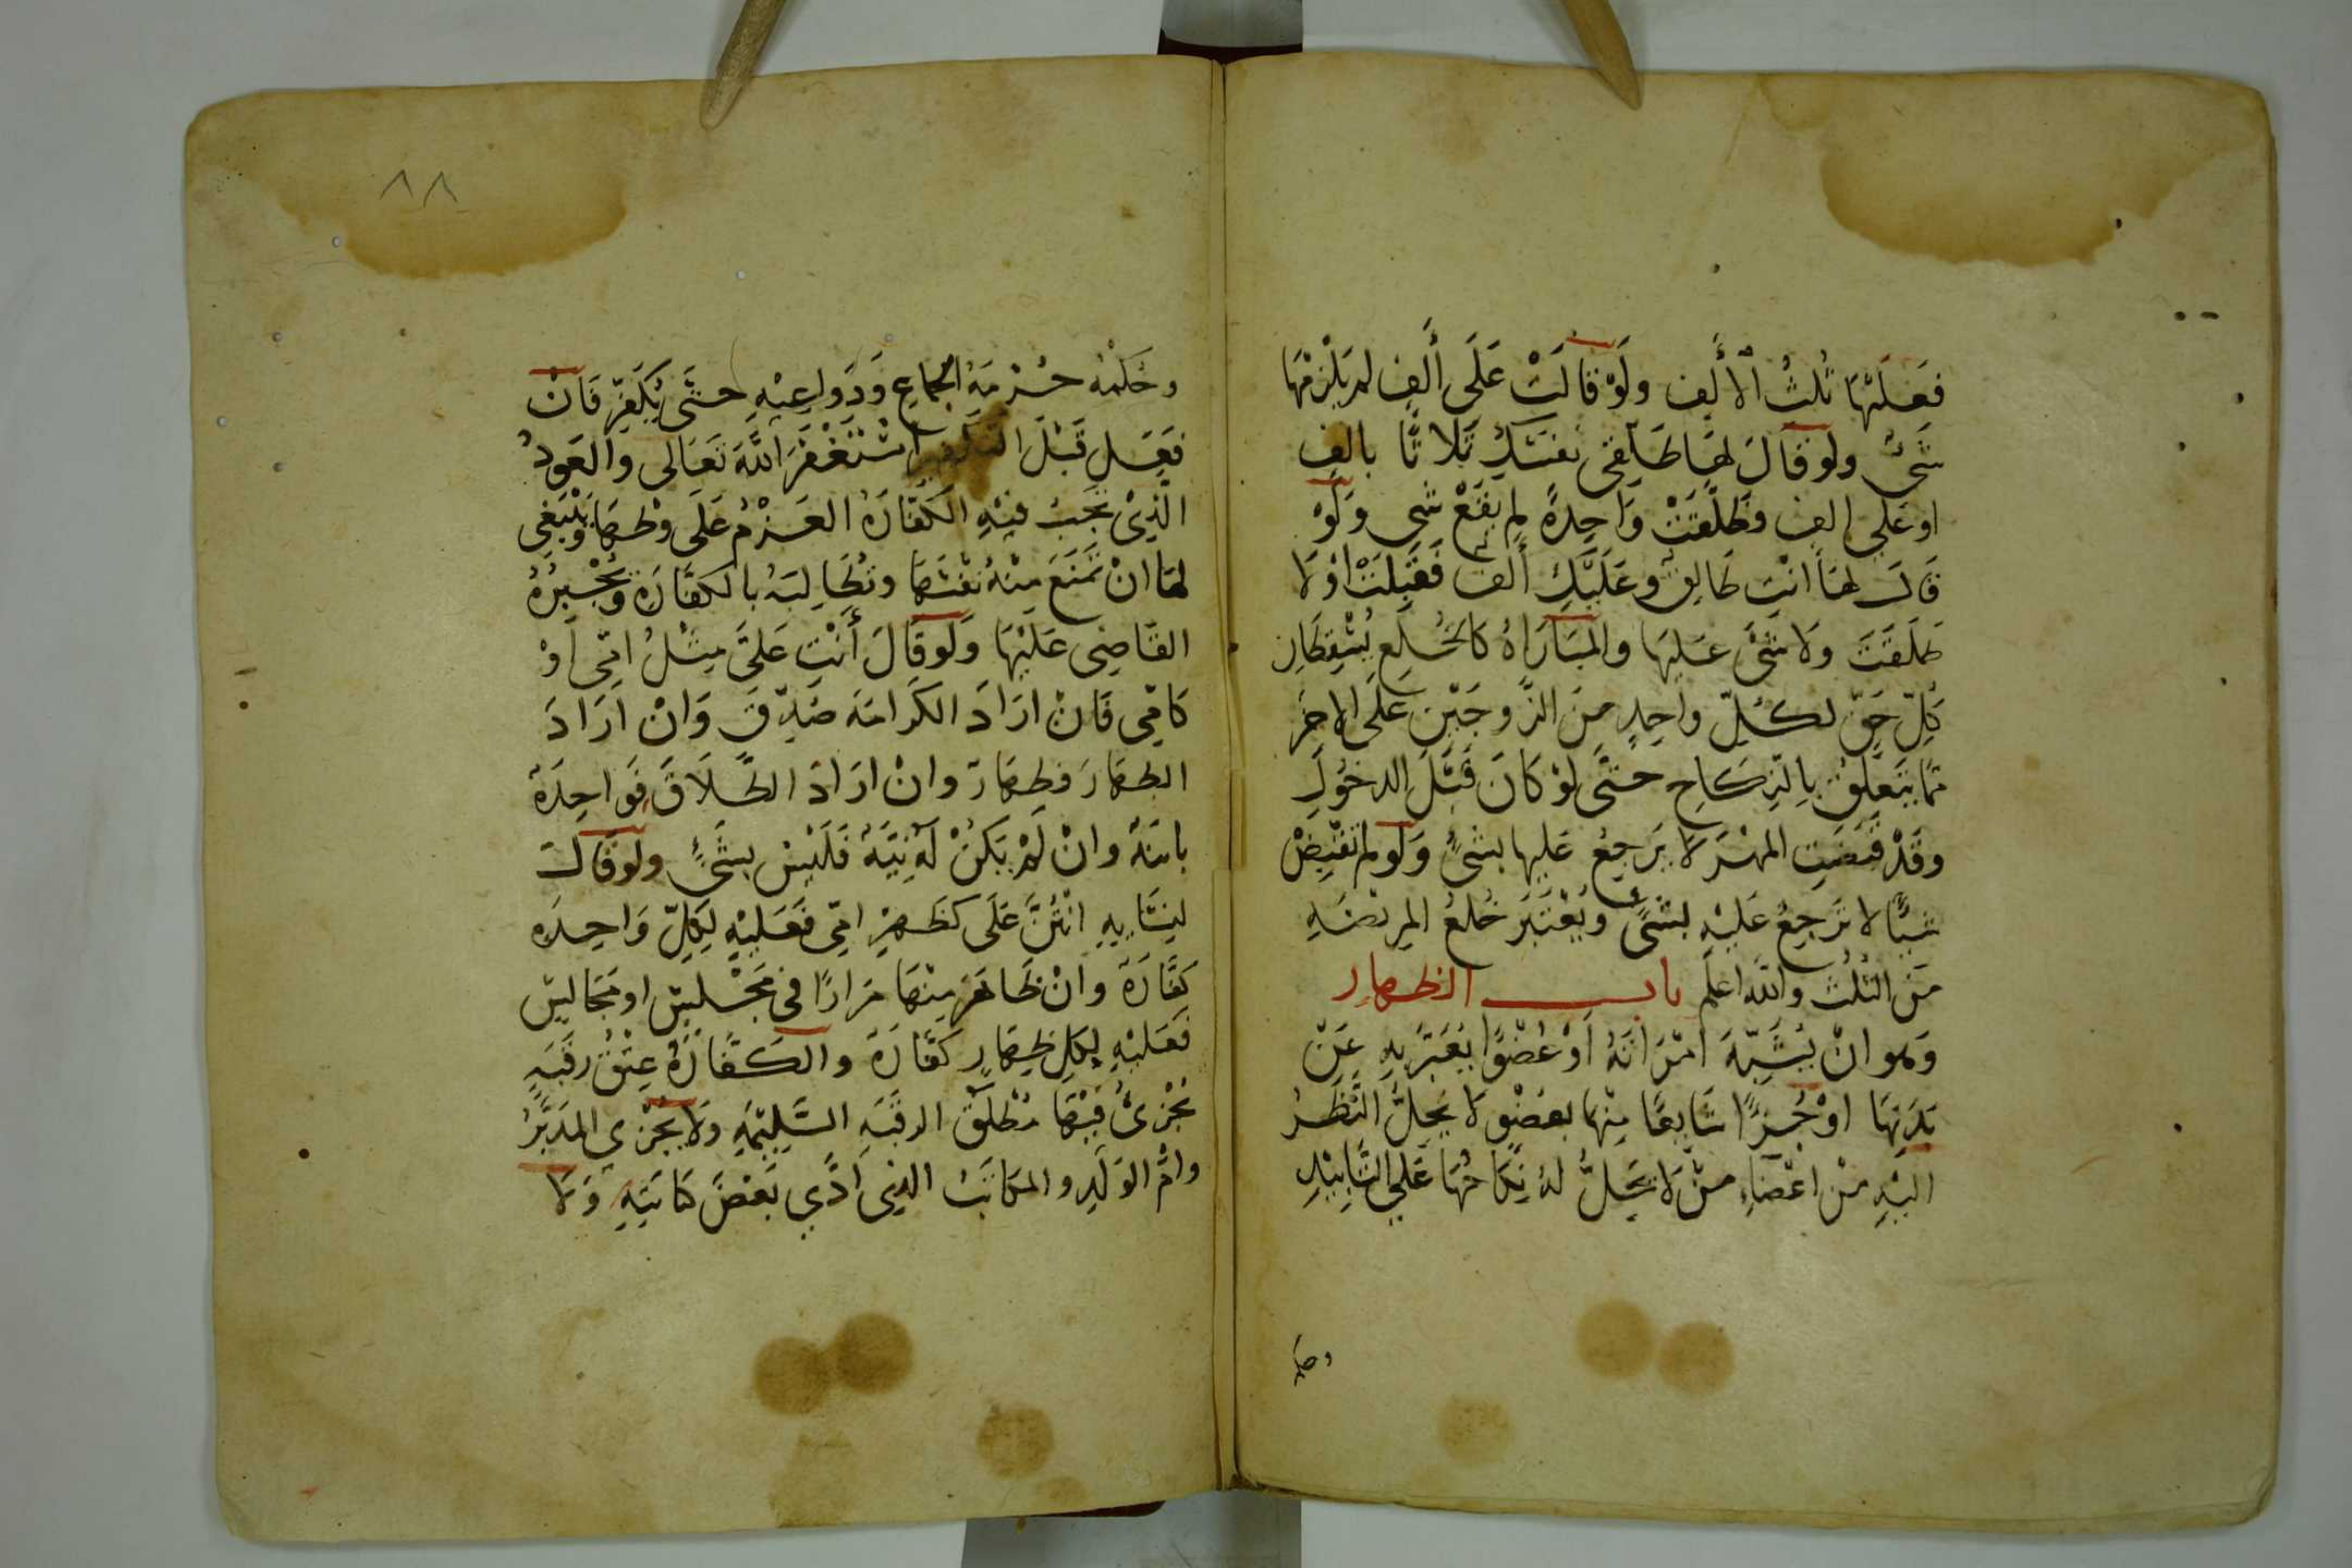 فَعَلَيْهَا ثُلُثُ الْأَلِف وَلَوْ قَالَتْ عَلَى أَلِف لم يَلْزَمْهَا
شَيْءٌ ولَو قَالَ لَهَا طَلِّقِي نفسَكِ ثَلَاثًا بالف
او عَلى الف فَطَلَّقَتْ وَاحِدةً لم يَقَعْ شي وَلَوْ
قَالَ لهَا أَنْتِ طَالِقٌ وعَلَيْكِ ألفٌ فَقَبِلَتْ اوْ لَا
طَلَقَتْ وَلَا شَيْءَ عَلَيْهَا والمُبَارَاةُ كَالخُلعِ يُسْقِطَانِ
كُلَّ حَقٍّ لكُلِّ واحِدٍ مِنَ الزَّوجَيْنِ عَلَى الاخَرِ
مِمَّا يَتَعَلَّقُ بِالنِّكَاحِ حَتَّى لَوْ كَانَ قَبْلَ الدخُولِ
وقَدْ قَبَضَتِ المهْرَ لَا يَرجِعُ عَلَيها بِشَيْءٍ وَلَو لم تقْبِضْ
شَيْئًا لَا تَرجِعُ عَلَيْهِ بِشَيْءٍ ويُعْتَبَرُ خُلعُ المرِيْضَهِ
مِنَ الثُّلُثِ والله اعلم بابــ الظهار
وَهو انْ يُشَبِّهَ امْرَاتَهُ أَوْ عُضْوًا يُعَبَّرُ بِهِ عَنْ
بَدَنِهَا اوْ جُزْءًا شَايعًا مِنْها بعُضْوٍ لَا يَحِلُّ النَّظَرُ
اليْهِ مِنْ اعْضَاءِ مَنْ لَا يَحِلُّ لهُ نِكَاحُهَا عَلَى التَّابِيْدِ
وحكمه
٨٨
وحُكْمُه حُرْمَةُ الجماعِ وَدَوَاعِيْهِ حَتَّى يُكَفِّرَ فَانْ
فَعَلَ قَبْلَ التكفير اسْتَغْفَرَ اللهَ تَعَالى وَالعَوْدُ
الَّذِيْ تَجِبُ فيْهِ الكَفَّارَةُ العَزْمُ عَلَى وَطْئِهَا وَيَنْبَغِي
لهَا انْ تَمْنَعَ مِنْهُ نَفْسَهَا وتُطَالِبَهُ بالكفَّارَةِ وَيُجْبِرُهُ
القَاضِى عَلَيْهَا وَلَو قَالَ أَنْتِ عَلَيَّ مِثْلُ امِّي اَوْ
كَامِّي فَانْ ارَادَ الكَرَامَه صُدِّقَ وَانْ ارَادَ
الظهَارَ فظِهَارٌ وانْ ارَادَ الطَّلَاقَ فَوَاحِدَةٌ
باينَةٌ وانْ لَمْ يَكُنْ لَهُ نِيَّةٌ فَلَيْسَ بشَيْءٍ ولَو قَالَ
لنِسَايِهِ انْتُنَّ عَلَى كظَهْرِ امِّي فَعَلَيْهِ لِكُلِّ وَاحِدَه
كفَّارَةٌ وانْ ظَاهَرَ مِنْهَا مِرَارًا فى مَجْلِسٍ او مَجَالِسَ
فعَلَيْهِ لِكلِ ظِهَارٍ كَفَّارَةٌ والكَفَّارَةُ عِتْقُ رقَبَهٍ
يُجْزِئُ فيْهَا مُطْلَقُ الرقَبَه السَّلِيْمَهِ وَلَا يُجْزِي المُدَبَّرُ
وامُّ الوَلَدِ والمكَاتَبُ الذِى أَدَّي بَعْضَ كتَابَتِهِ وَلَا